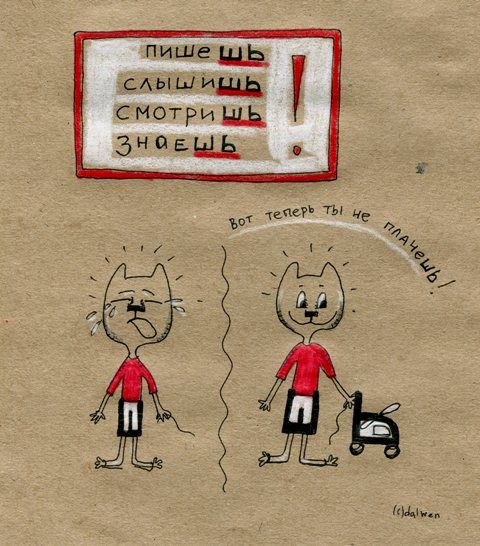 пишешь
слышишь
смотришь
знаешь
!
вот теперь ты не плачешь!
(c)dalwen